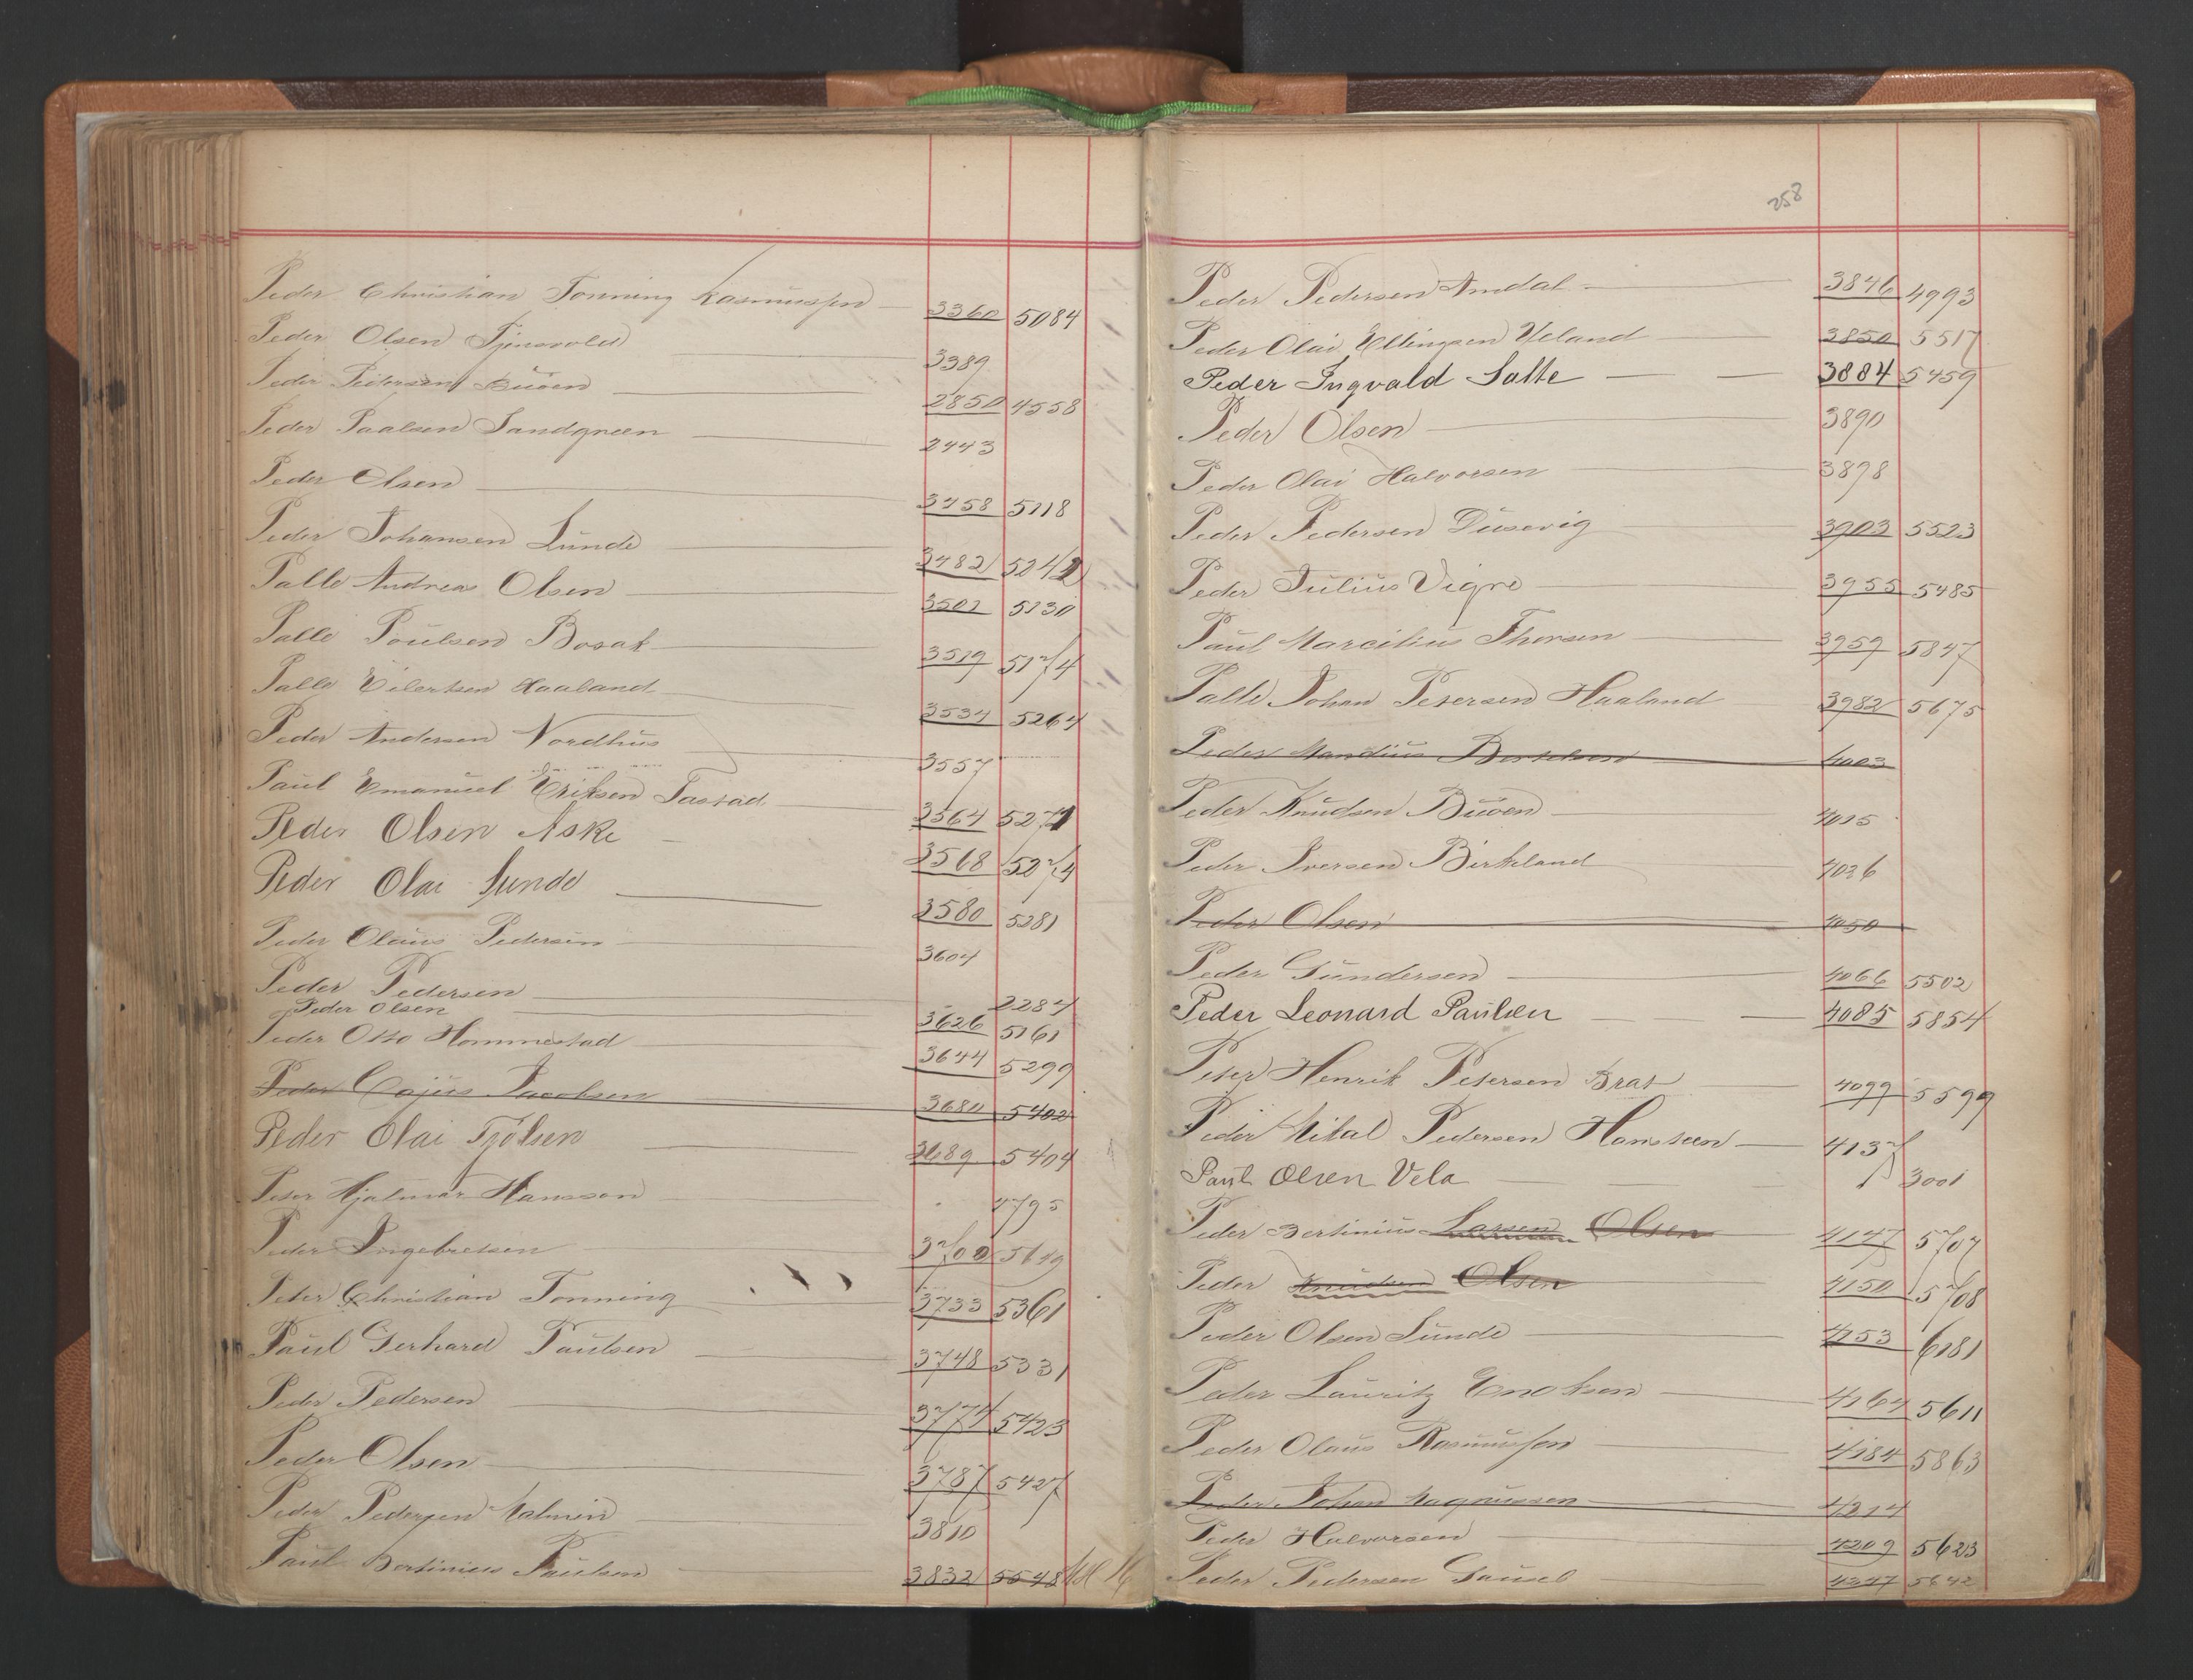 Peder Christian Tonning Rasmussen 3360 5084
Peder Olsen 3389
Peder Pedersen Buven 2850 4558
Peder Paalsen Sandgreen 2443
Peder Olsen 3458 5118
Peder Johansen Lunde 3482 5242
Palle Andreas Olsen 3501 5130
Palle Poulsen Bosak 3519 5174
Palle Eilertsen Haaland 3534 5264
Peder Andersen Nordhus 3557
Paul Emanuel Eriksen Tastad 3564 5271
Peder Olsen Aske 3568 5274
Peder Olai Sunde 3580 5281
Peder Olaus Pedersen 3604
Peder Pedersen 2284
Peder Olsen 3626 5161
Peder Otto Hommestad 3644 5299
Peder Cajus Jacobsen 3680 5402
Peder Olai Tjølsen 3689 5404
Peter Hjalmar Hanssen 4795
Peder Ingebretsen 3700 5619
Peter Christian Tonning 3733 5361
Paul Gerhard Paulsen 3748 5331
Peder Pedersen 3774 5423
Peder Olsen 3787 5427
Peder Pedersen Malmin 3810
Paul Bertinius Paulsen 3832 5548
258
Peder Pedersen Amdal 3846 4993
Peder Olai Ellingsen Ueland 3850 5517
Peder Ingvald Salte 3884 5459
Peder Olsen 3890
Peder Olai Halvorsen 3898
Peder Pedersen Dusevig 3903 5523
Peder Julius Vigre 3955 5485
Paul Marcilius Thorsen 3959 5847
Palle Johan Petersen Haaland 3982 5675
Peder Mandius Bertelsen 4003
Peder Knudsen Buven 4015
Peder Iversen Birkeland 4026
Peder Olsen 4050
Peder Gundersen 4066 5502
Peder Leonard Paulsen 4085 5854
Peter Henrik Petersen Brat 4099 5599
Peder Mikal Pedersen Hansteen 4137
Paul Olsen Vela 3001
Peder Bertinius Larsen Olsen 4147 5707
Peder Knudsen Olsen 4150 5708
Peder Olsen Lunde 4153 6181
Peder Lauritz Enoksen 4164 5611
Peder Olaus Rasmussen 4184 5863
Peder Johan Magnussen 4214
Peder Halvorsen 4209 5623
Peder Pedersen Gausel 4247 5642